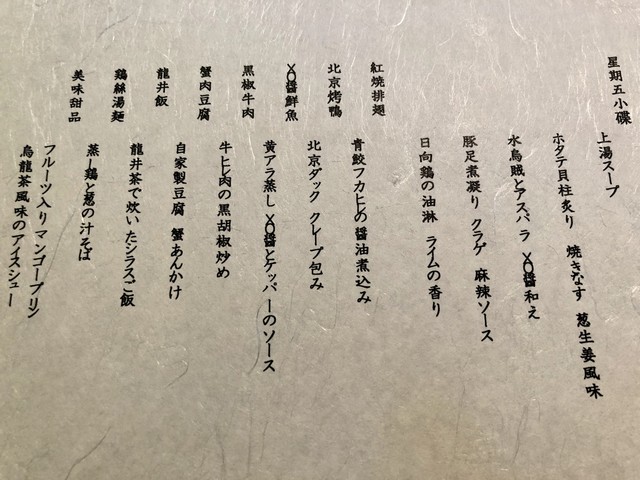 星期五小碟
上湯スープ
ホタテ貝柱炙り 焼きなす 葱生姜風味
水烏賊とアスパラ XO醤和え
豚足煮凝り クラゲ 麻辣ソース
日向鶏の油淋 ライムの香り
紅焼排翅
青鮫フカヒレの醤油煮込み
北京烤鴨
北京ダック クレープ包み
XO醤鮮魚
黄アラ蒸し XO醤とケッパーのソース
黒椒牛肉
牛ヒレ肉の黒胡椒炒め
蟹肉豆腐
自家製豆腐 蟹あんかけ
龍井飯
龍井茶で炊いたシラスご飯
鶏絲湯麺
蒸し鶏と葱の汁そば
美味甜品
フルーツ入りマンゴープリン
烏龍茶風味のアイスシュー